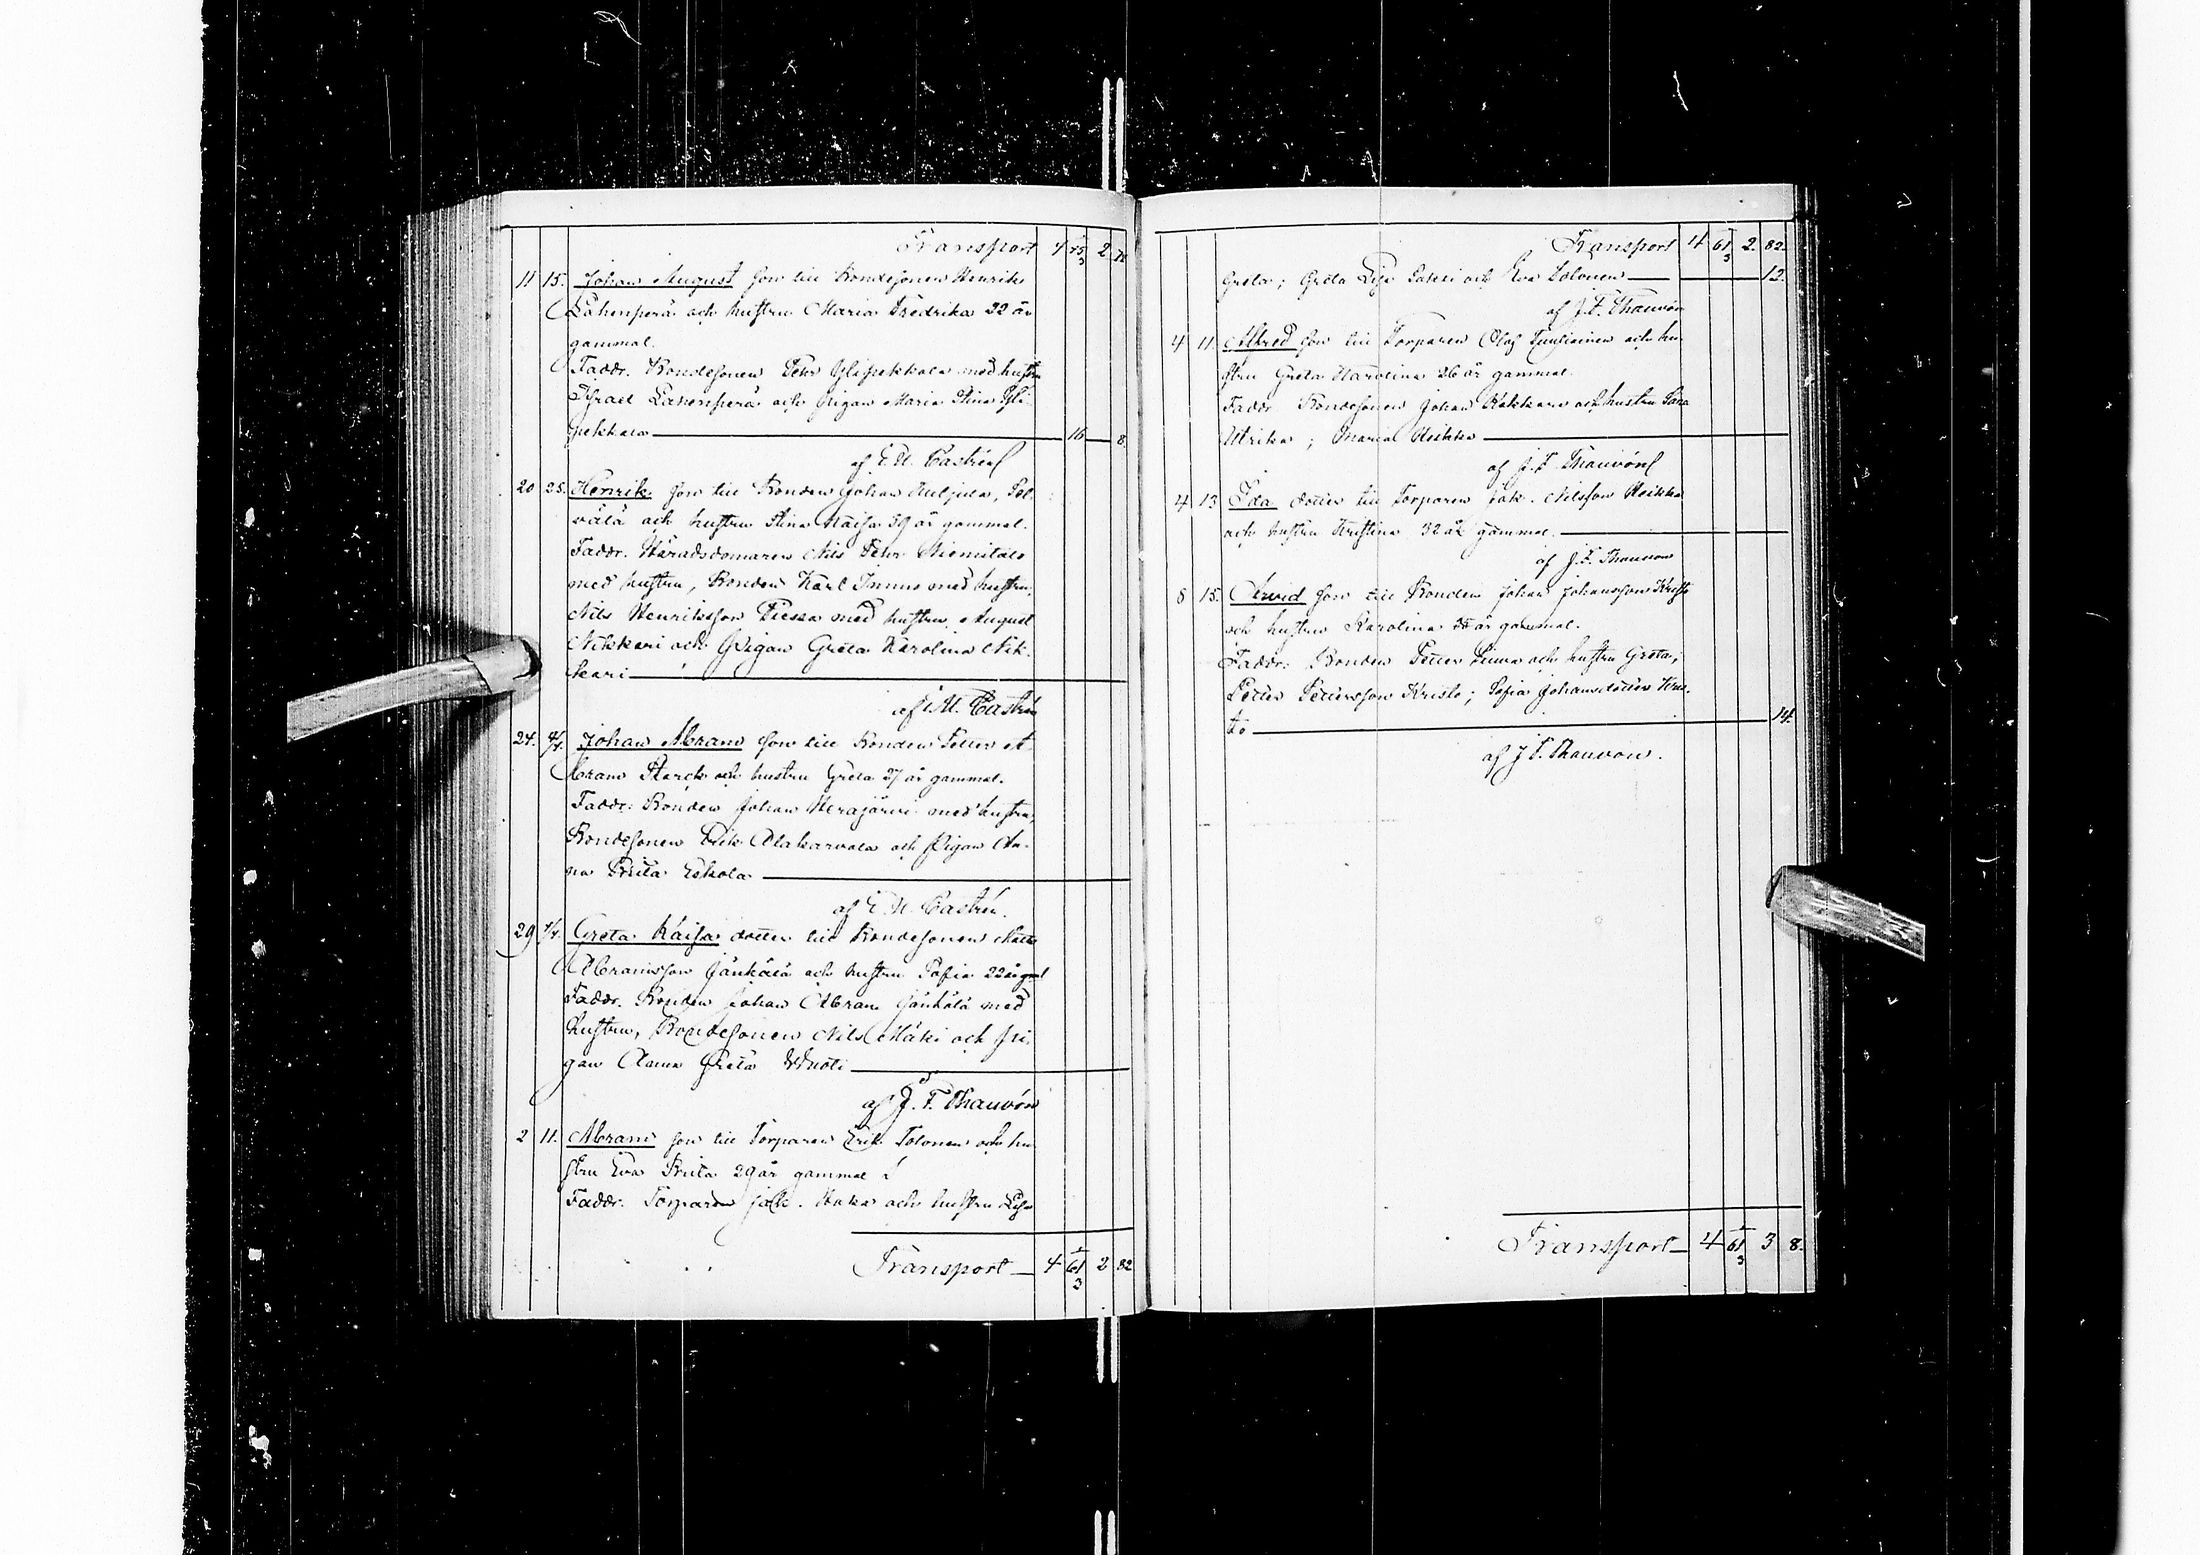 Transport 4 2
11 15. Johan August son till Bondesonen Henrik
Lähenperä och hustru Maria Fredrika 22 år
gammal.
Faddr. Bondesonen Pehr Ylipekkala med hustru
Israel Lähenperä och Pigan Maria Stina Yli-
pekkala 16 8
af E. N. Castrén
20 25. Henrik son till Bonden Johan
och hustru Stina Kaisa 39 år gammal.
Faddr. Häradsdomaren Nils Pehr Niemitalo
med hustru, Bonden Karl med hustru,
Nils Henriksson med hustru, August
Nikkari och Pigan Greta Karolina Nik-
kari
af Castrén
24. 4/4. Johan Abram son till Bonden Petter A-
bram Starck och hustru Greta 27 år gammal.
Faddr: Bonden Johan Herajärvi med hustru,
Bondesonen Erik Alakarvala och Pigan An-
na Briita Eskola
af E. N. Castrén.
29 4/4. Greta Kaisa dotter till Bondesonen Matts
Abramsson Jänkälä och hustru Sofia 22 år gml
Faddr. Bonden Johan Abram Jänkälä med
hustru, Bondesonen Nils Mäki och pi-
gan Anna Greta
af J. F. Thauvón
2 11. Abram son till Torparen Erik Tolonen och hu-
stru Eva Briita 29 år gammal
Faddr. Torparen Jak. och hustru Lisa
Transport 4 61 3 2 82
Transport 4 61 3 2. 82.
Greta; Greta Lisa och Eva Tolonen 12.
af J. F. Thauvón
4 11. Alfred son till Torparen Olof och hu-
stru Greta Karolina 26 år gammal.
Faddr. Bondesonen Johan och hustru
Ulrika; Maria Heikka
af J. F. Thauvón
4 13 Ida dotter till Torparen Jak. Nilsson Heikka
och hustru Kristina 32 år gammal.
af J. F. Thauvon
8 15. Arvid son till Bonden Johan Johansson Kristo
och hustru Karolina 35 år gammal.
Faddr: Bonden Petter och hustru Greta;
Petter Pettersson Kristo; Sofia Johansdotter Kris-
to 14.
af J. F. Thauvon.
Transport 4 61 3 3 8.